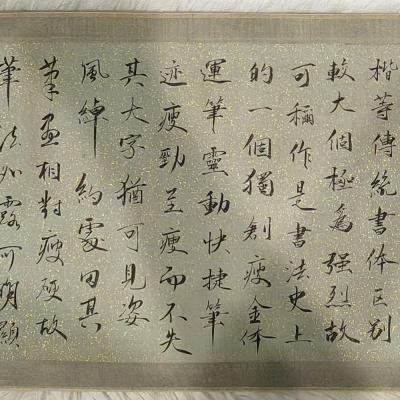 楷等傳統書体区别
較大個極為强烈故
可稱作是書法史上
的一個獨創瘦金体
運筆靈動快捷筆
迹瘦勁至瘦而不失
其大字猶可見姿
風綽約處因其
筆画相對瘦硬故
筆法外露可明顯